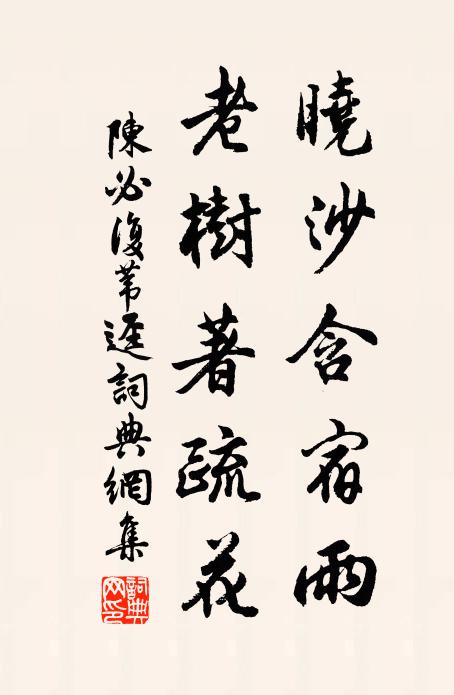 曉沙含宿雨
老樹著疏花
陳必復葦逕詞典網集
詞典网印